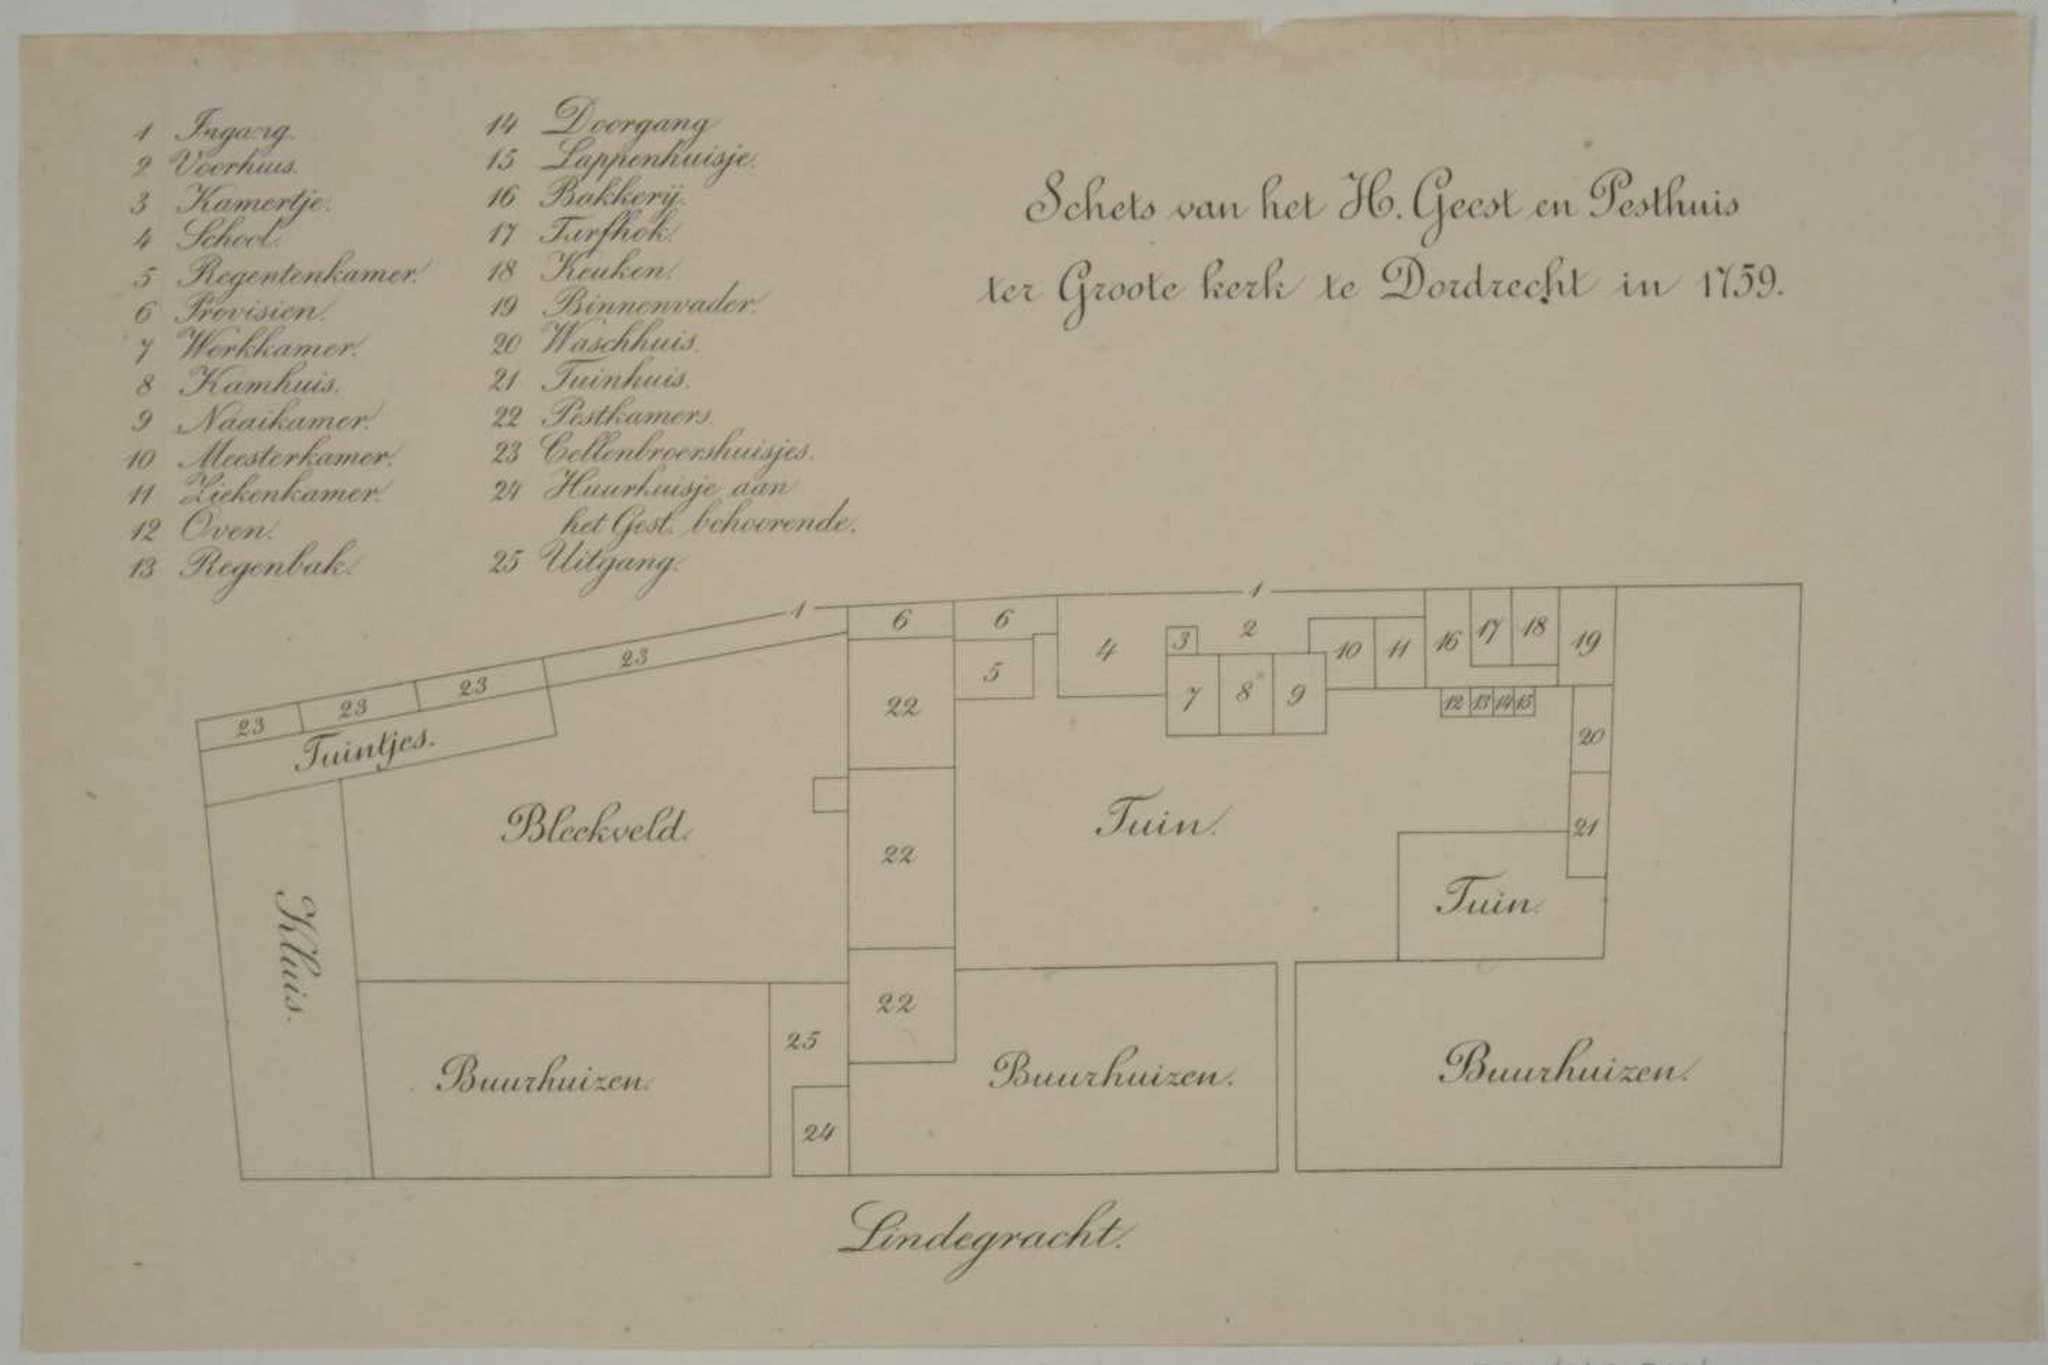 1 Ingang.
2 Voorhuis.
3 Kamertje.
4 School.
5 Regentenkamer.
6 Provisien.
7 Werkkamer.
8 Kamhuis.
9 Naaikamer.
10 Meesterkamer.
11 Ziekenkamer.
12 Oven.
13 Regenbak.
14 Doorgang
15 Lappenhuisje.
16 Bakkerij.
17 Turfhok.
18 Keuken.
19 Binnenvader.
20 Waschhuis.
21 Tuinhuis.
22 Pestkamers.
23 Cellenbroershuisjes.
24 Huurhuisje aan
het Gest. behoorende.
25 Uitgang.
Schets van het H. Geest en Pesthuis
ter Groote kerk te Dordrecht in 1759.
1 1
6 6 4 3 2 10 11 16 17 18 19
23 23 23 23
5 7 8 9
22
12 13 14 15
20
Tuintjes.
Bleekveld.
22
Tuin.
21
Tuin.
Kluis.
22
25
Buurhuizen.
Buurhuizen.
Buurhuizen.
24
Lindegracht.